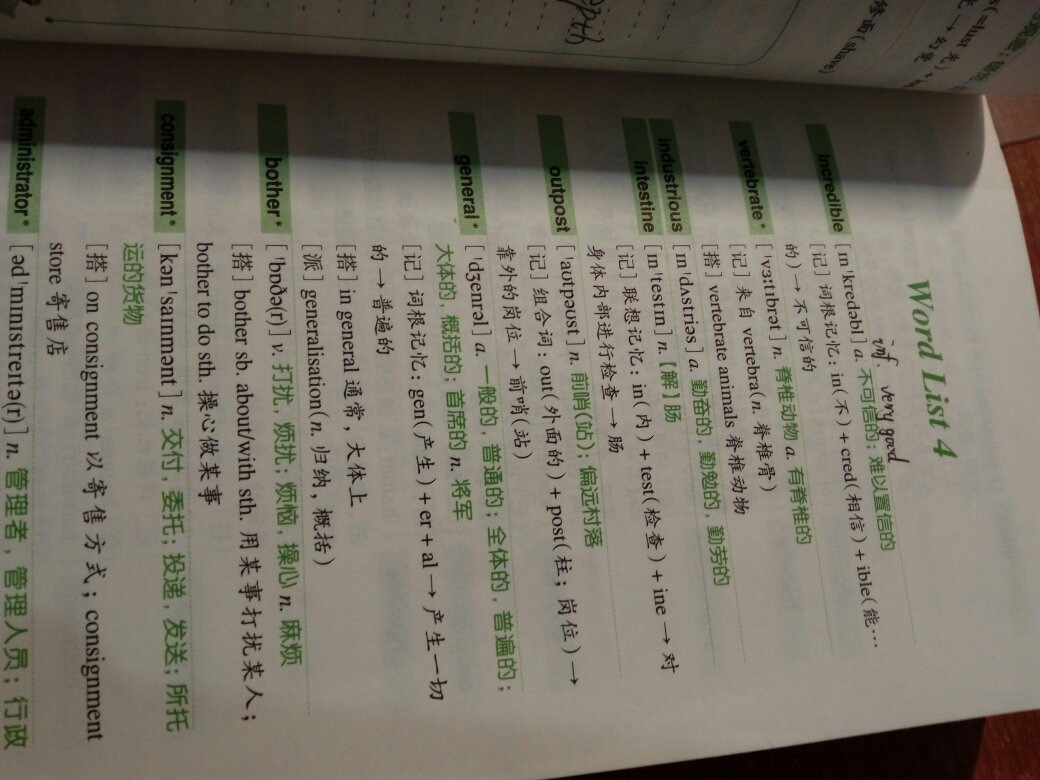 Word List 4
inf. very good
incredible [ɪnˈkredəbl] a. 不可信的；难以置信的
[记] 词根记忆：in(不)+cred(相信)+ible(能…
的)→不可信的
vertebrate* [ˈvɜːtɪbrət] n. 脊椎动物 a. 有脊椎的
[记] 来自 vertebra(n. 脊椎骨)
[搭] vertebrate animals 脊椎动物
industrious [ɪnˈdʌstriəs] a. 勤奋的，勤勉的，勤劳的
intestine [ɪnˈtestɪn] n.【解】肠
[记] 联想记忆：in(内)+test(检查)+ine→对
身体内部进行检查→肠
outpost [ˈaʊtpəʊst] n. 前哨(站)；偏远村落
[记] 组合词：out(外面的)+post(柱；岗位)→
靠外的岗位→前哨(站)
general* [ˈdʒenrəl] a. 一般的，普通的；全体的，普遍的；
大体的，概括的；首席的 n. 将军
[记] 词根记忆：gen(产生)+er+al→产生一切
的→普遍的
[搭] in general 通常，大体上
[派] generalisation(n. 归纳，概括)
bother* [ˈbɒðə(r)] v. 打扰，烦扰；烦恼，操心 n. 麻烦
[搭] bother sb. about/with sth. 用某事打扰某人；
bother to do sth. 操心做某事
consignment* [kənˈsaɪnmənt] n. 交付，委托；投递，发送；所托
运的货物
[搭] on consignment 以寄售方式；consignment
store 寄售店
administrator* [ədˈmɪnɪstreɪtə(r)] n. 管理者，管理人员；行政